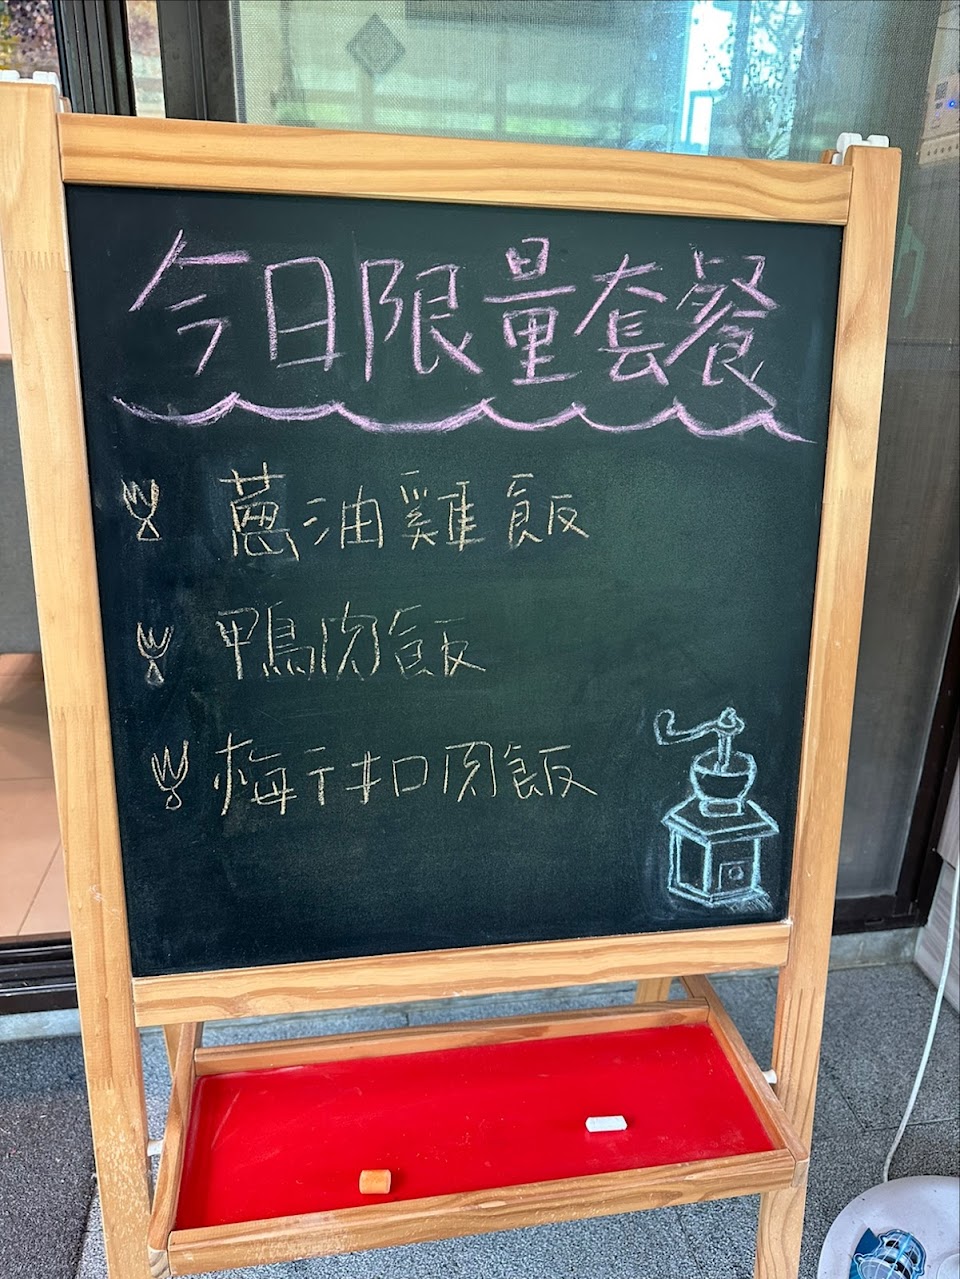 今日限量套餐
蔥油雞飯
鴨肉飯
梅干扣肉飯